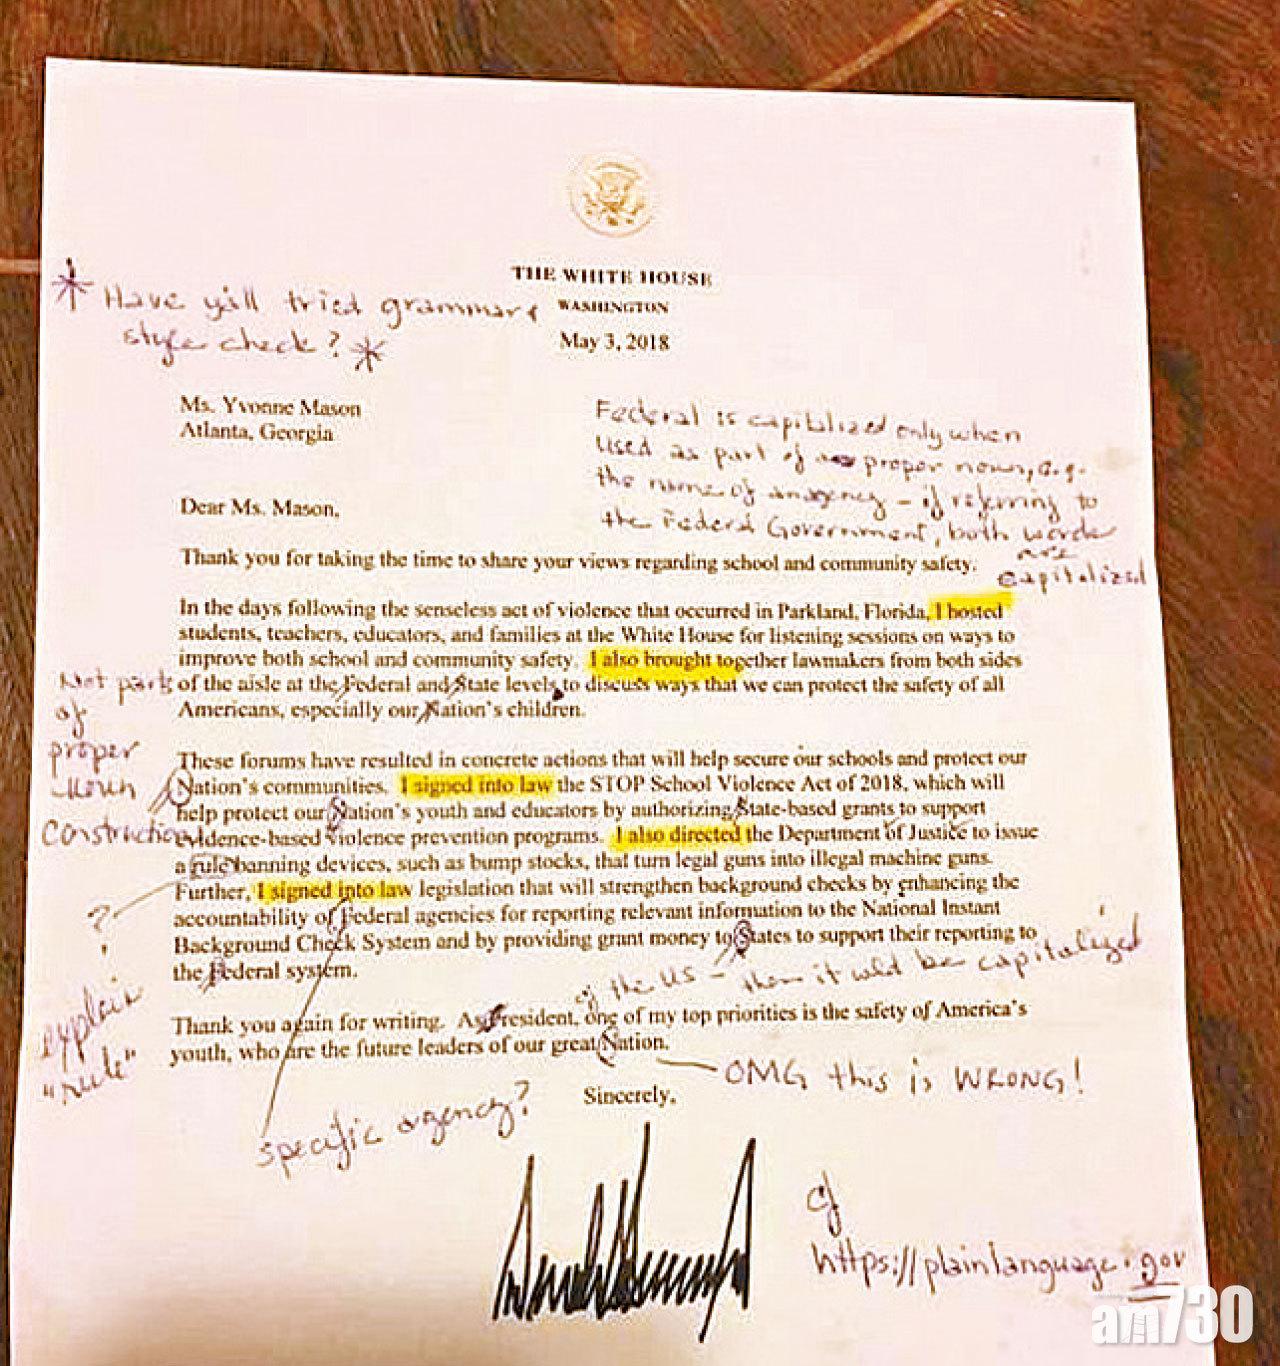 THE WHITE HOUSE
WASHINGTON
May 3, 2018
* Have y'all tried grammar &
style check? *
Ms. Yvonne Mason
Atlanta, Georgia
Federal is capitalized only when
used as part of a proper noun, e.g.
the name of an agency – if referring to
the Federal Government, both words
are
capitalized
Dear Ms. Mason,
Thank you for taking the time to share your views regarding school and community safety.
In the days following the senseless act of violence that occurred in Parkland, Florida, I hosted
students, teachers, educators, and families at the White House for listening sessions on ways to
improve both school and community safety. I also brought together lawmakers from both sides
of the aisle at the Federal and State levels to discuss ways that we can protect the safety of all
Americans, especially our Nation's children.
Not part
of
proper
noun
construction
These forums have resulted in concrete actions that will help secure our schools and protect our
Nation's communities. I signed into law the STOP School Violence Act of 2018, which will
help protect our Nation's youth and educators by authorizing State-based grants to support
evidence-based violence prevention programs. I also directed the Department of Justice to issue
a rule banning devices, such as bump stocks, that turn legal guns into illegal machine guns.
Further, I signed into law legislation that will strengthen background checks by enhancing the
accountability of Federal agencies for reporting relevant information to the National Instant
Background Check System and by providing grant money to States to support their reporting to
the Federal system.
?
explain
"rule"
of the US – then it wld be capitalized
Thank you again for writing. As President, one of my top priorities is the safety of America's
youth, who are the future leaders of our great Nation.
OMG this is WRONG!
Sincerely,
specific agency?
cf
https://plainlanguage.gov
am730